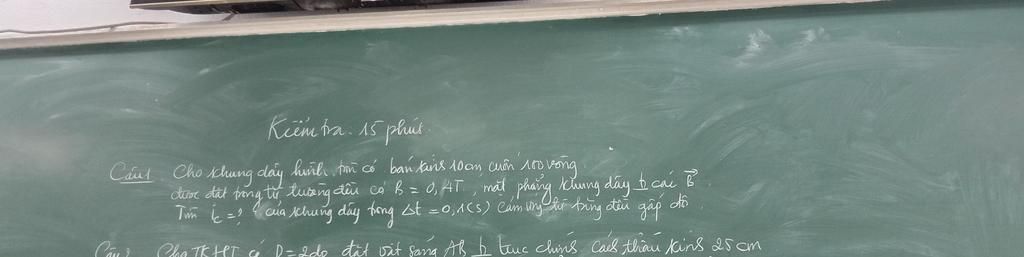 Kiểm tra 15 phút
Câu 1 Cho khung dây hình tròn có bán kính 10cm cuốn 100 vòng
được đặt trong từ trường đều có B = 0,1T, mặt phẳng khung dây ⊥ các B⃗
Tìm của khung dây trong Δt = 0,1(s) cảm ứng từ tăng đều gấp đôi
Câu 2 Cho TKHT có D=2dp đặt vật sáng AB ⊥ trục chính cách thấu kính 25cm